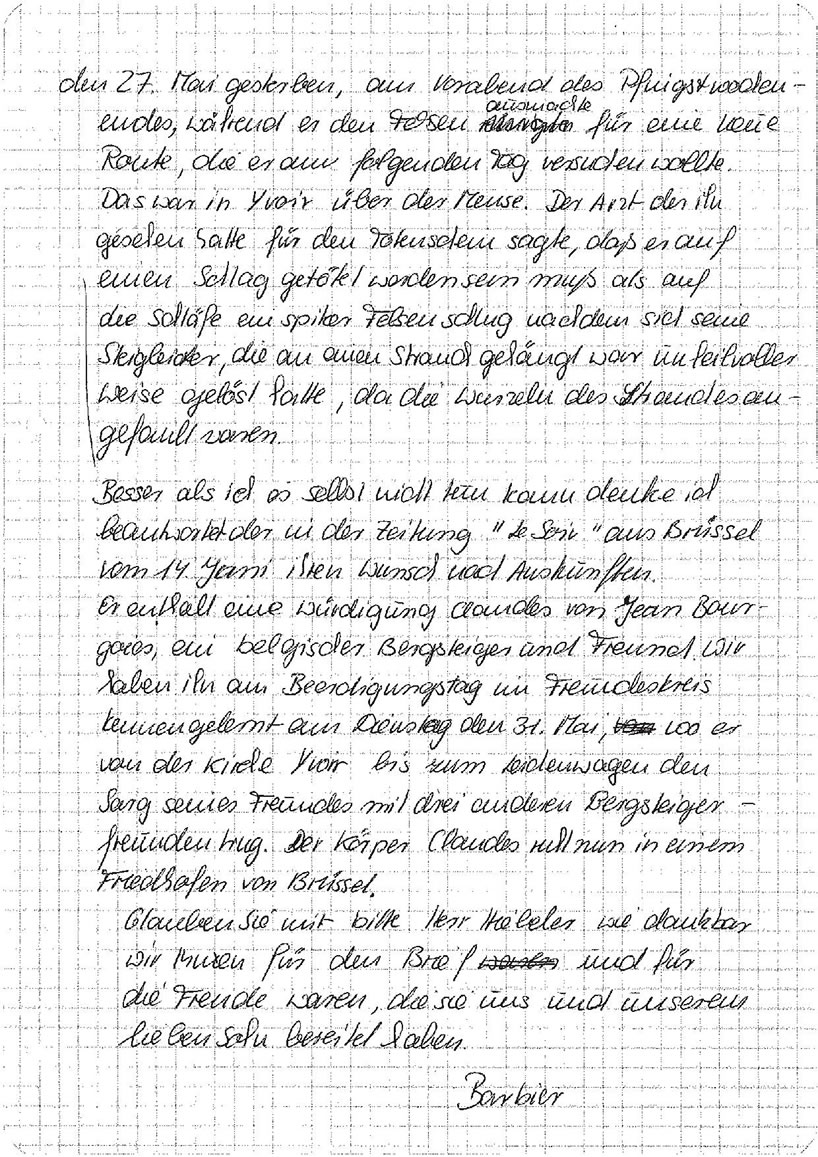 den 27. Mai gestorben, am Vorabend des Pfingstwochen-
ausmachte
endes, während er den Felsen für eine neue
Route, die er am folgenden Tag versuchen wollte.
Das war in Yvoir über der Meuse. Der Arzt der ihn
gesehen hatte für den Totenschein sagte, daß er auf
einen Schlag getötet worden sein muß als auf
die Schläfe ein spitzer Felsen schlug nachdem sich seine
Steigleiter, die an einen Strauch gehängt war unheilvoller
Weise gelöst hatte, da die Wurzeln des Strauches an-
gefault waren.
Besser als ich es selbst nicht tun kann denke ich
beantwortet der in der Zeitung "Le Soir" aus Brüssel
vom 14 Juni ihren Wunsch nach Auskünften.
Er enthält eine Würdigung Claudes von Jean Bour-
gois, ein belgischer Bergsteiger und Freund. Wir
haben ihn am Beerdigungstag im Freundeskreis
kennengelernt am Dienstag den 31. Mai, wo er
von der Kirche Yvoir bis zum Leichenwagen den
Sarg seines Freundes mit drei anderen Bergsteiger-
freunden trug. Der Körper Claudes ruht nun in einem
Friedhofen von Brüssel.
Glauben Sie mir bitte Herr Hiebeler wie dankbar
wir Ihnen für den Brief und für
die Freude waren, die sie uns und unserem
lieben Sohn bereitet haben.
Barbier